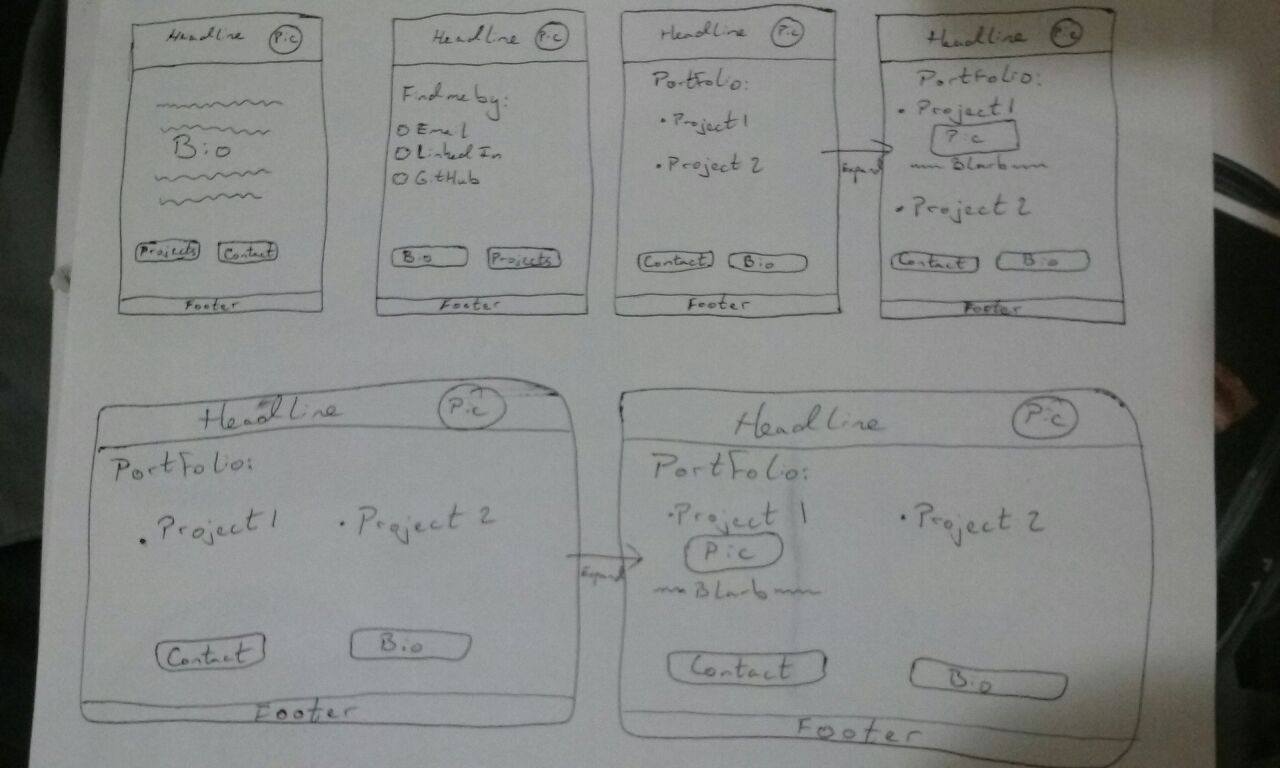 Headline Pic
Bio
Projects Contact
Footer
Headline Pic
Find me by:
Email
Linked In
GitHub
Bio Projects
Footer
Headline Pic
Portfolio:
• Project 1
• Project 2
Contact Bio
Footer
Expand
Headline Pic
Portfolio:
• Project 1
Pic
Blarb
• Project 2
Contact Bio
Footer
Headline Pic
Portfolio:
• Project 1 • Project 2
Contact Bio
Footer
Expand
Headline Pic
Portfolio:
• Project 1 • Project 2
Pic
Blarb
Contact Bio
Footer